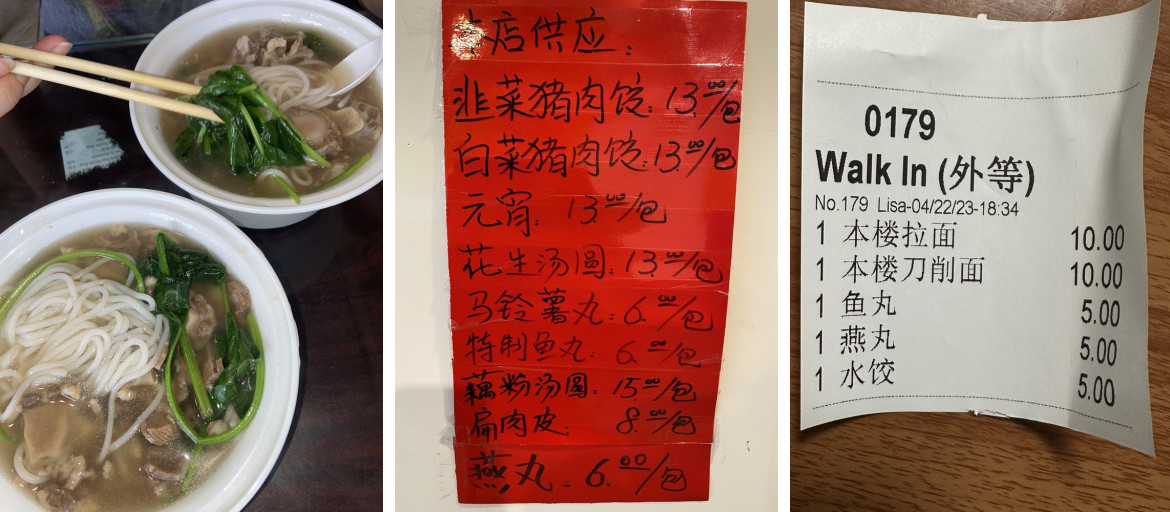 本店供应:
韭菜猪肉饺: 13.00/包
白菜猪肉饺: 13.00/包
元宵: 13.00/包
花生汤圆: 13.00/包
马铃薯丸: 6.00/包
特制鱼丸: 6.00/包
藕粉汤圆: 15.00/包
扁肉皮: 8.00/包
燕丸: 6.00/包
0179
Walk In (外等)
No.179 Lisa-04/22/23-18:34
1 本楼拉面 10.00
1 本楼刀削面 10.00
1 鱼丸 5.00
1 燕丸 5.00
1 水饺 5.00